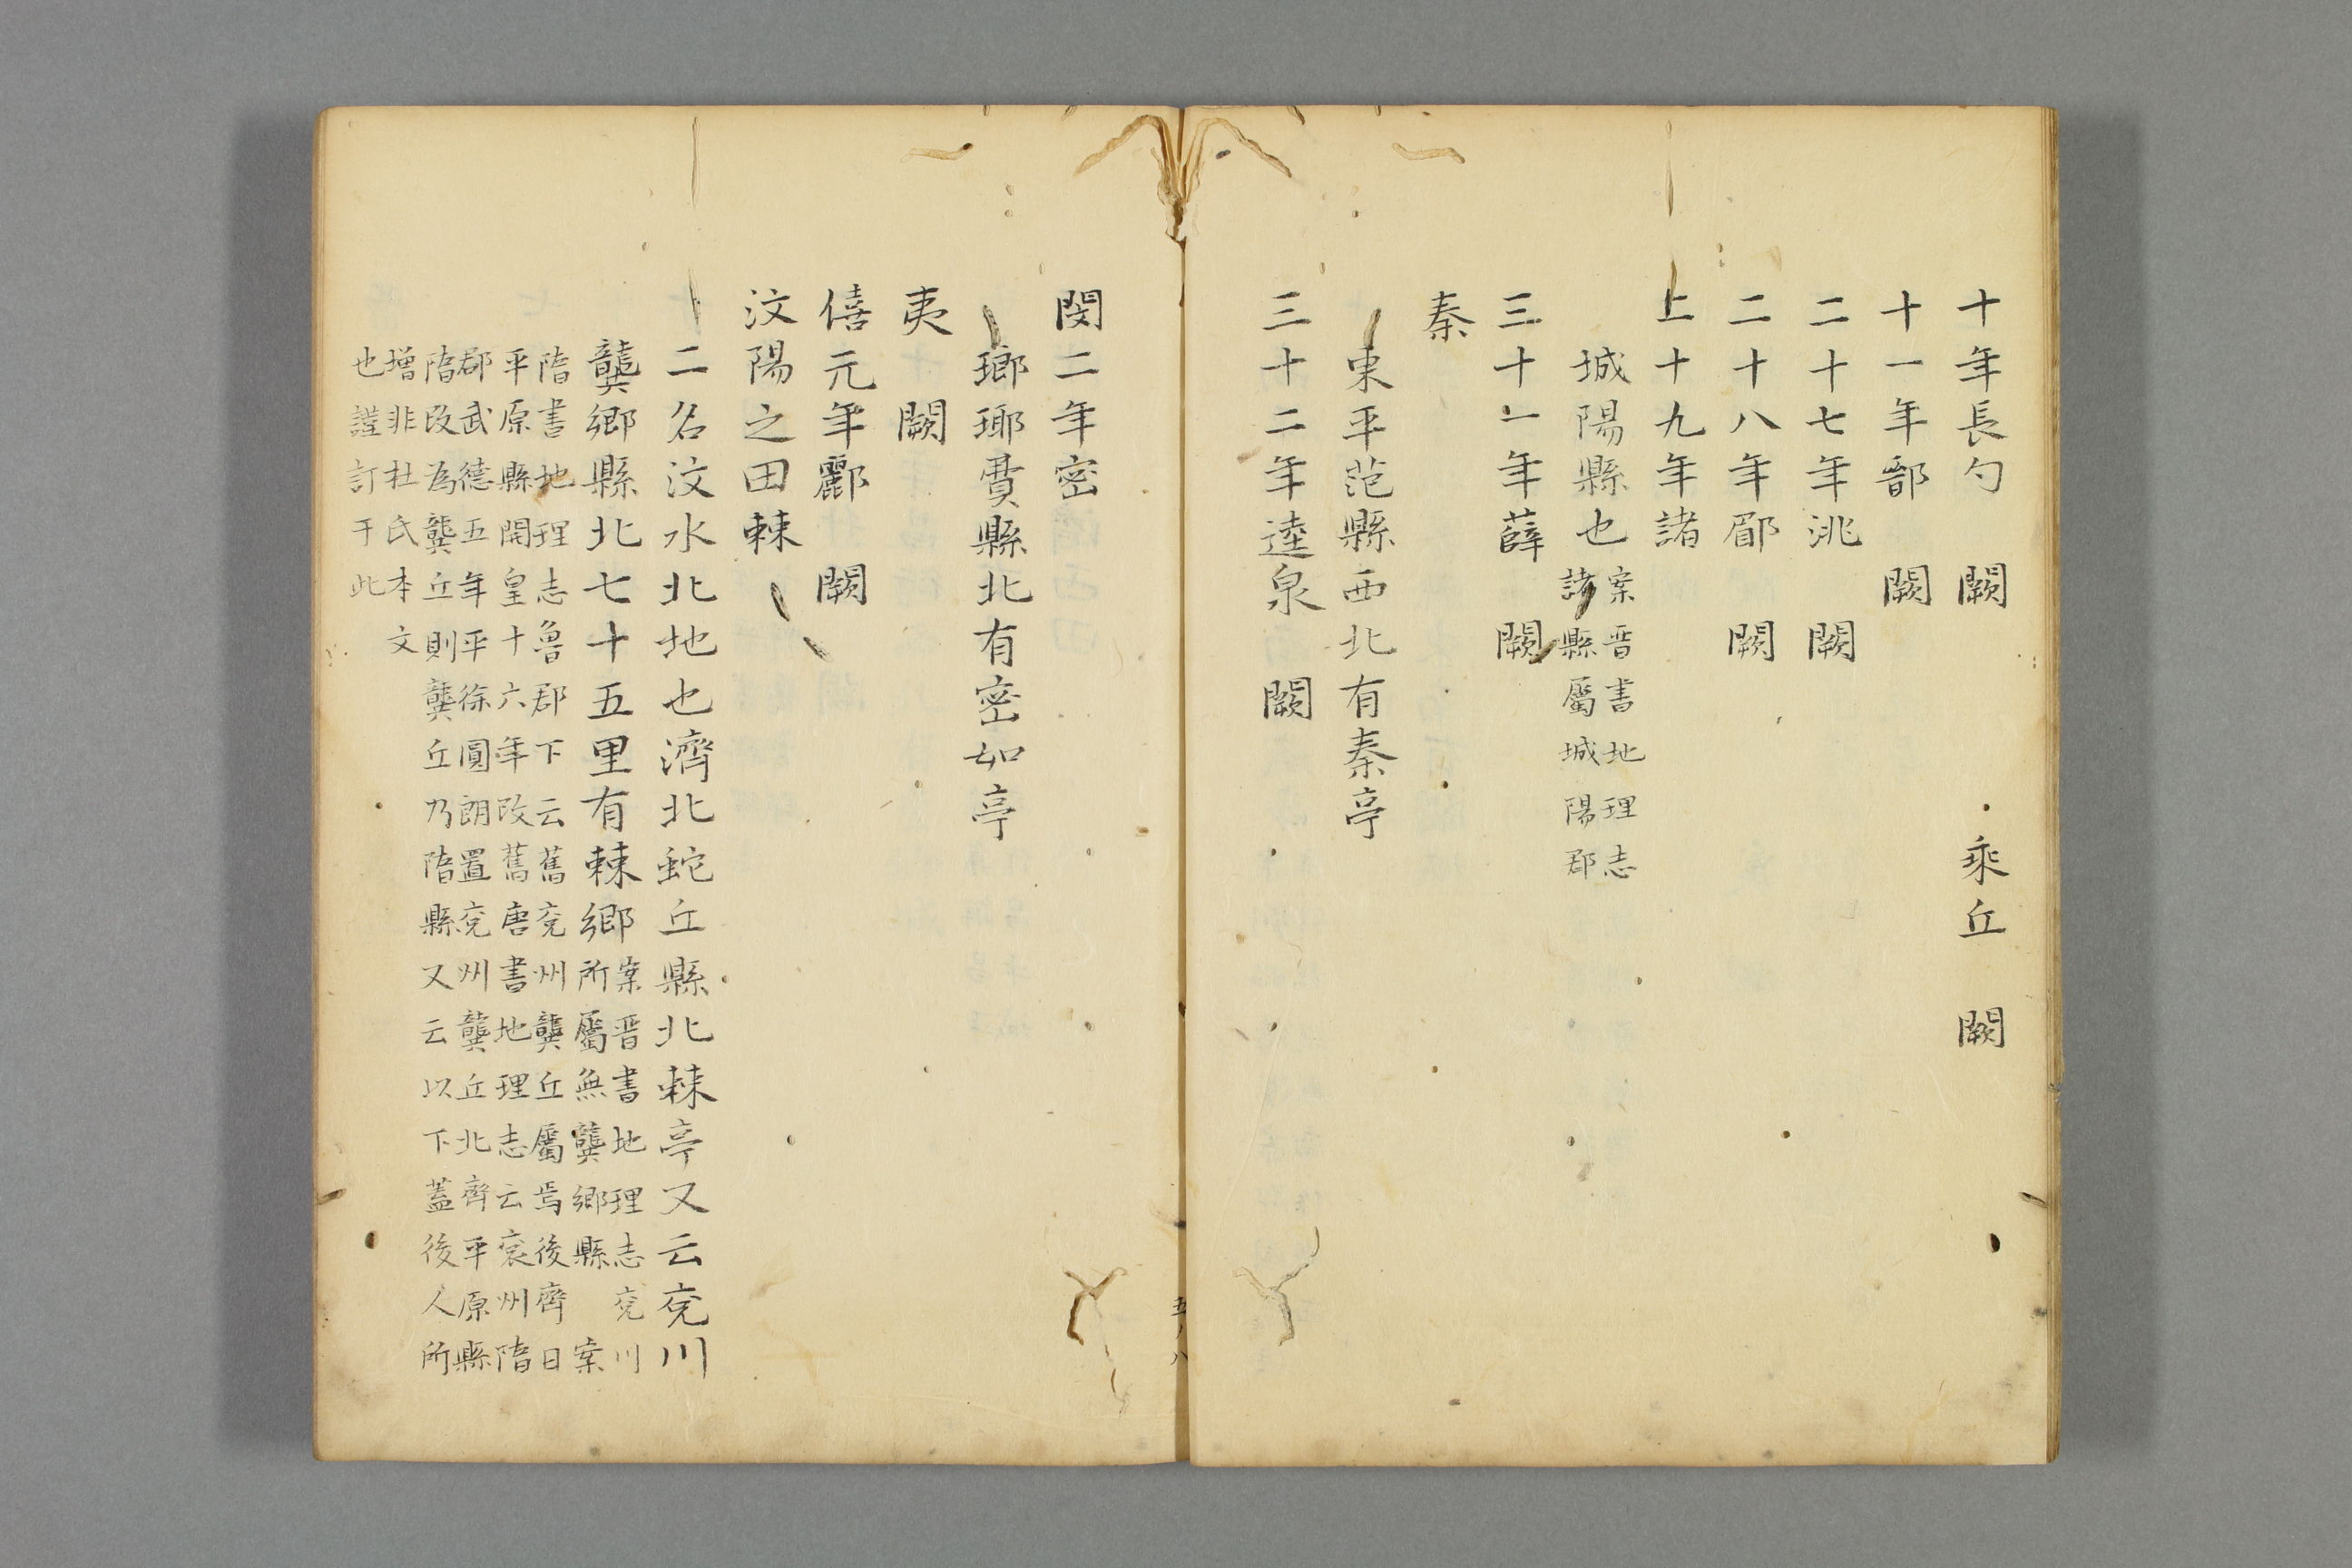 十年長勺 闕 乘丘 闕
十一年鄑 闕
二十七年洮 闕
二十八年郿 闕
二十九年諸
城陽縣也案晋書地理志
諸縣屬城陽郡
三十一年薛 闕
秦
東平范縣西北有秦亭
三十二年逵泉 闕
閔二年密
瑯琊費縣北有密如亭
夷 闕
僖元年酈 闕
汶陽之田棘
二名汶水北地也濟北蛇丘縣北棘亭又云兖川
龔鄉縣北七十五里有棘鄉案晋書地理志兖川
所屬無龔鄉縣 案
隋書地理志魯郡下云舊兖州龔丘屬焉後齊曰
平原縣開皇十六年改舊唐書地理志云兖州隋
郡武德五年平徐圓朗置兖州龔丘北齊平原縣
隋改為龔丘則龔丘乃隋縣又云以下蓋後人所
增非杜氏本文
也謹訂于此